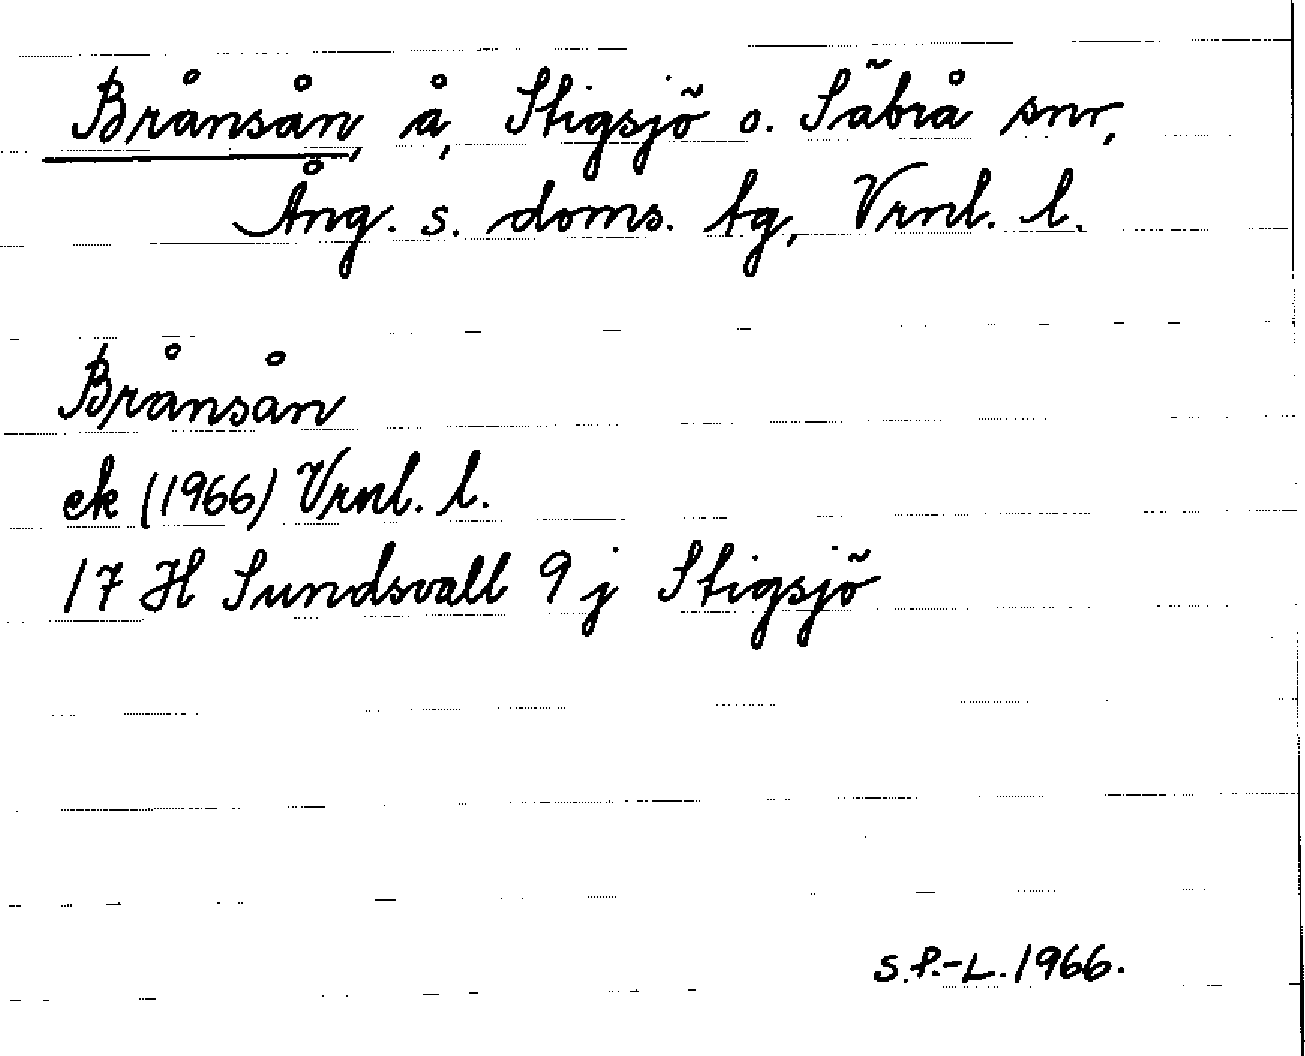 Brånsån, å, Stigsjö o. Säbrå snr,
Ång. s. doms. tg, Vrnl. l.
Brånsån
ek (1966) Vrnl. l.
17 H Sundsvall 9 j Stigsjö
S.P.-L. 1966.